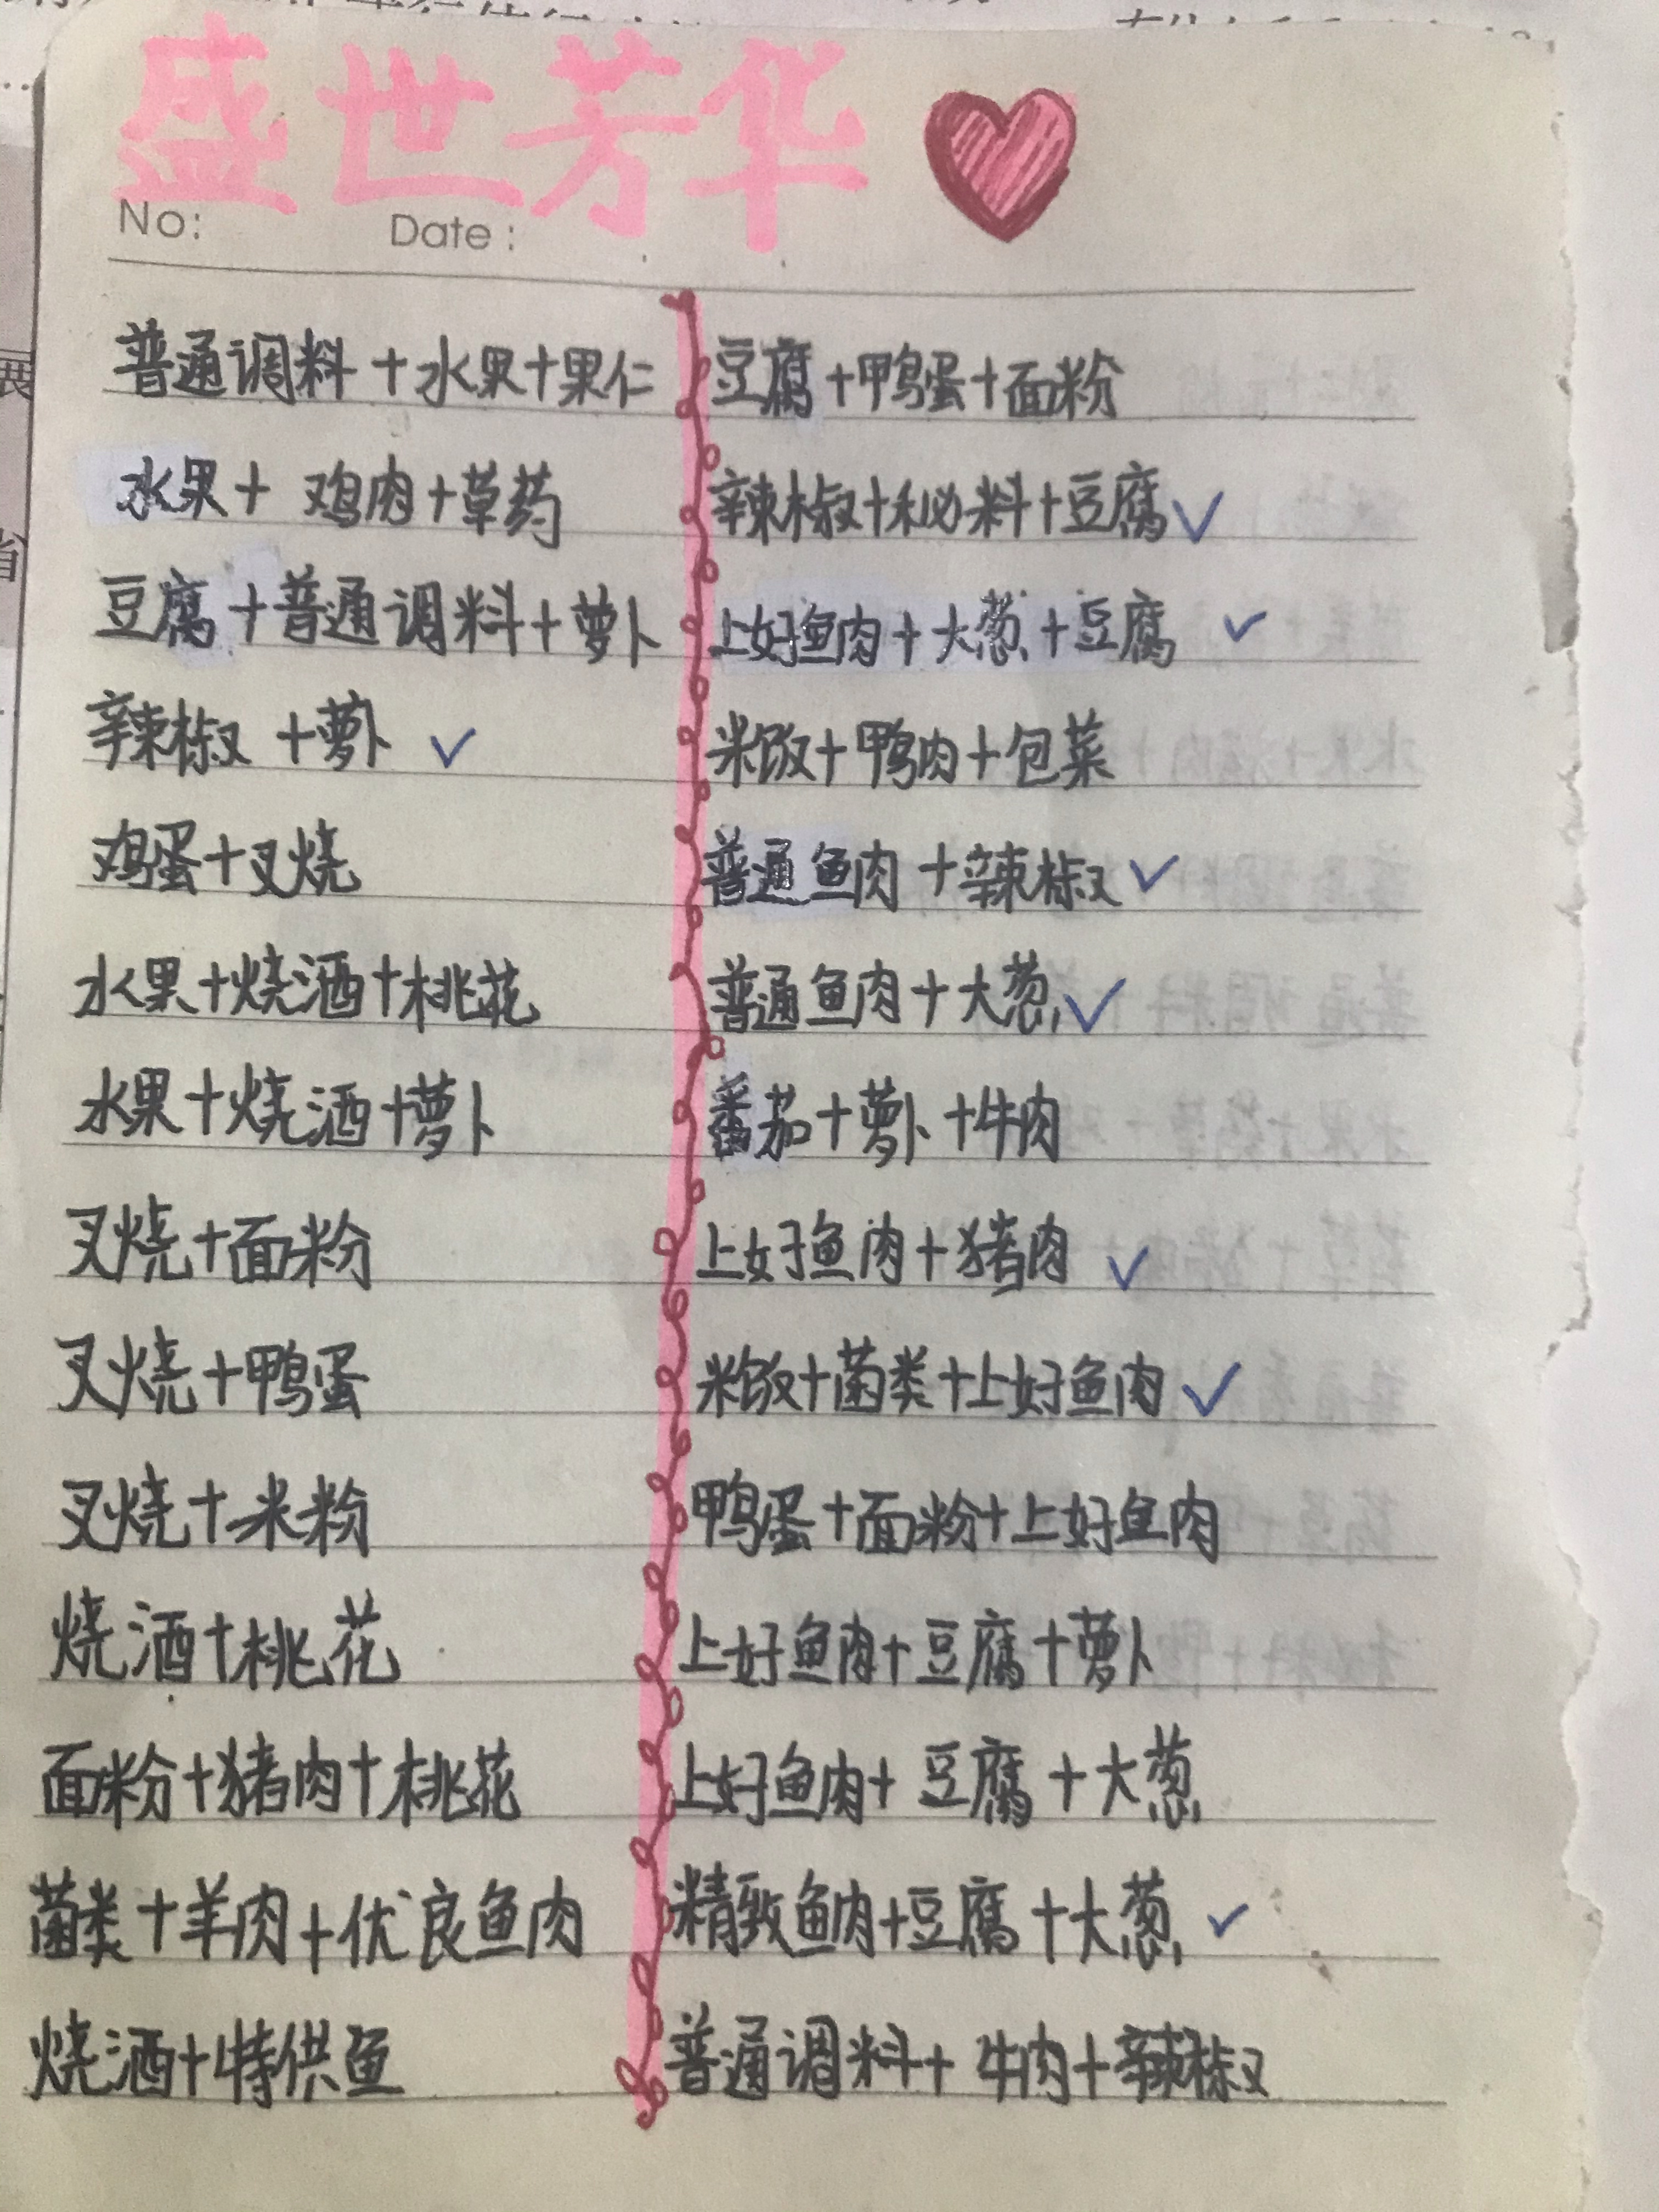 盛世芳华
No: Date:
普通调料+水果+果仁
水果+鸡肉+草药
豆腐+普通调料+萝卜
辣椒+萝卜 ✓
鸡蛋+叉烧
水果+烧酒+桃花
水果+烧酒+萝卜
叉烧+面粉
叉烧+鸭蛋
叉烧+米粉
烧酒+桃花
面粉+猪肉+桃花
菌类+羊肉+优良鱼肉
烧酒+特供鱼
豆腐+鸭蛋+面粉
辣椒+秘料+豆腐 ✓
上好鱼肉+大葱+豆腐 ✓
米饭+鸭肉+包菜
普通鱼肉+辣椒 ✓
普通鱼肉+大葱 ✓
番茄+萝卜+牛肉
上好鱼肉+猪肉 ✓
米饭+菌类+上好鱼肉 ✓
鸭蛋+面粉+上好鱼肉
上好鱼肉+豆腐+萝卜
上好鱼肉+豆腐+大葱
精致鱼肉+豆腐+大葱 ✓
普通调料+牛肉+辣椒